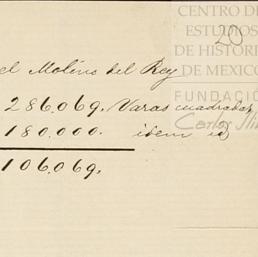 CENTRO DE
ESTUDIOS
DE HISTORI
DE MEXICO
FUNDACIÓ
Carlos Sli
20)
el Molino del Rey
286.069. Varas cuadradas
180,000. idem id
106.069.